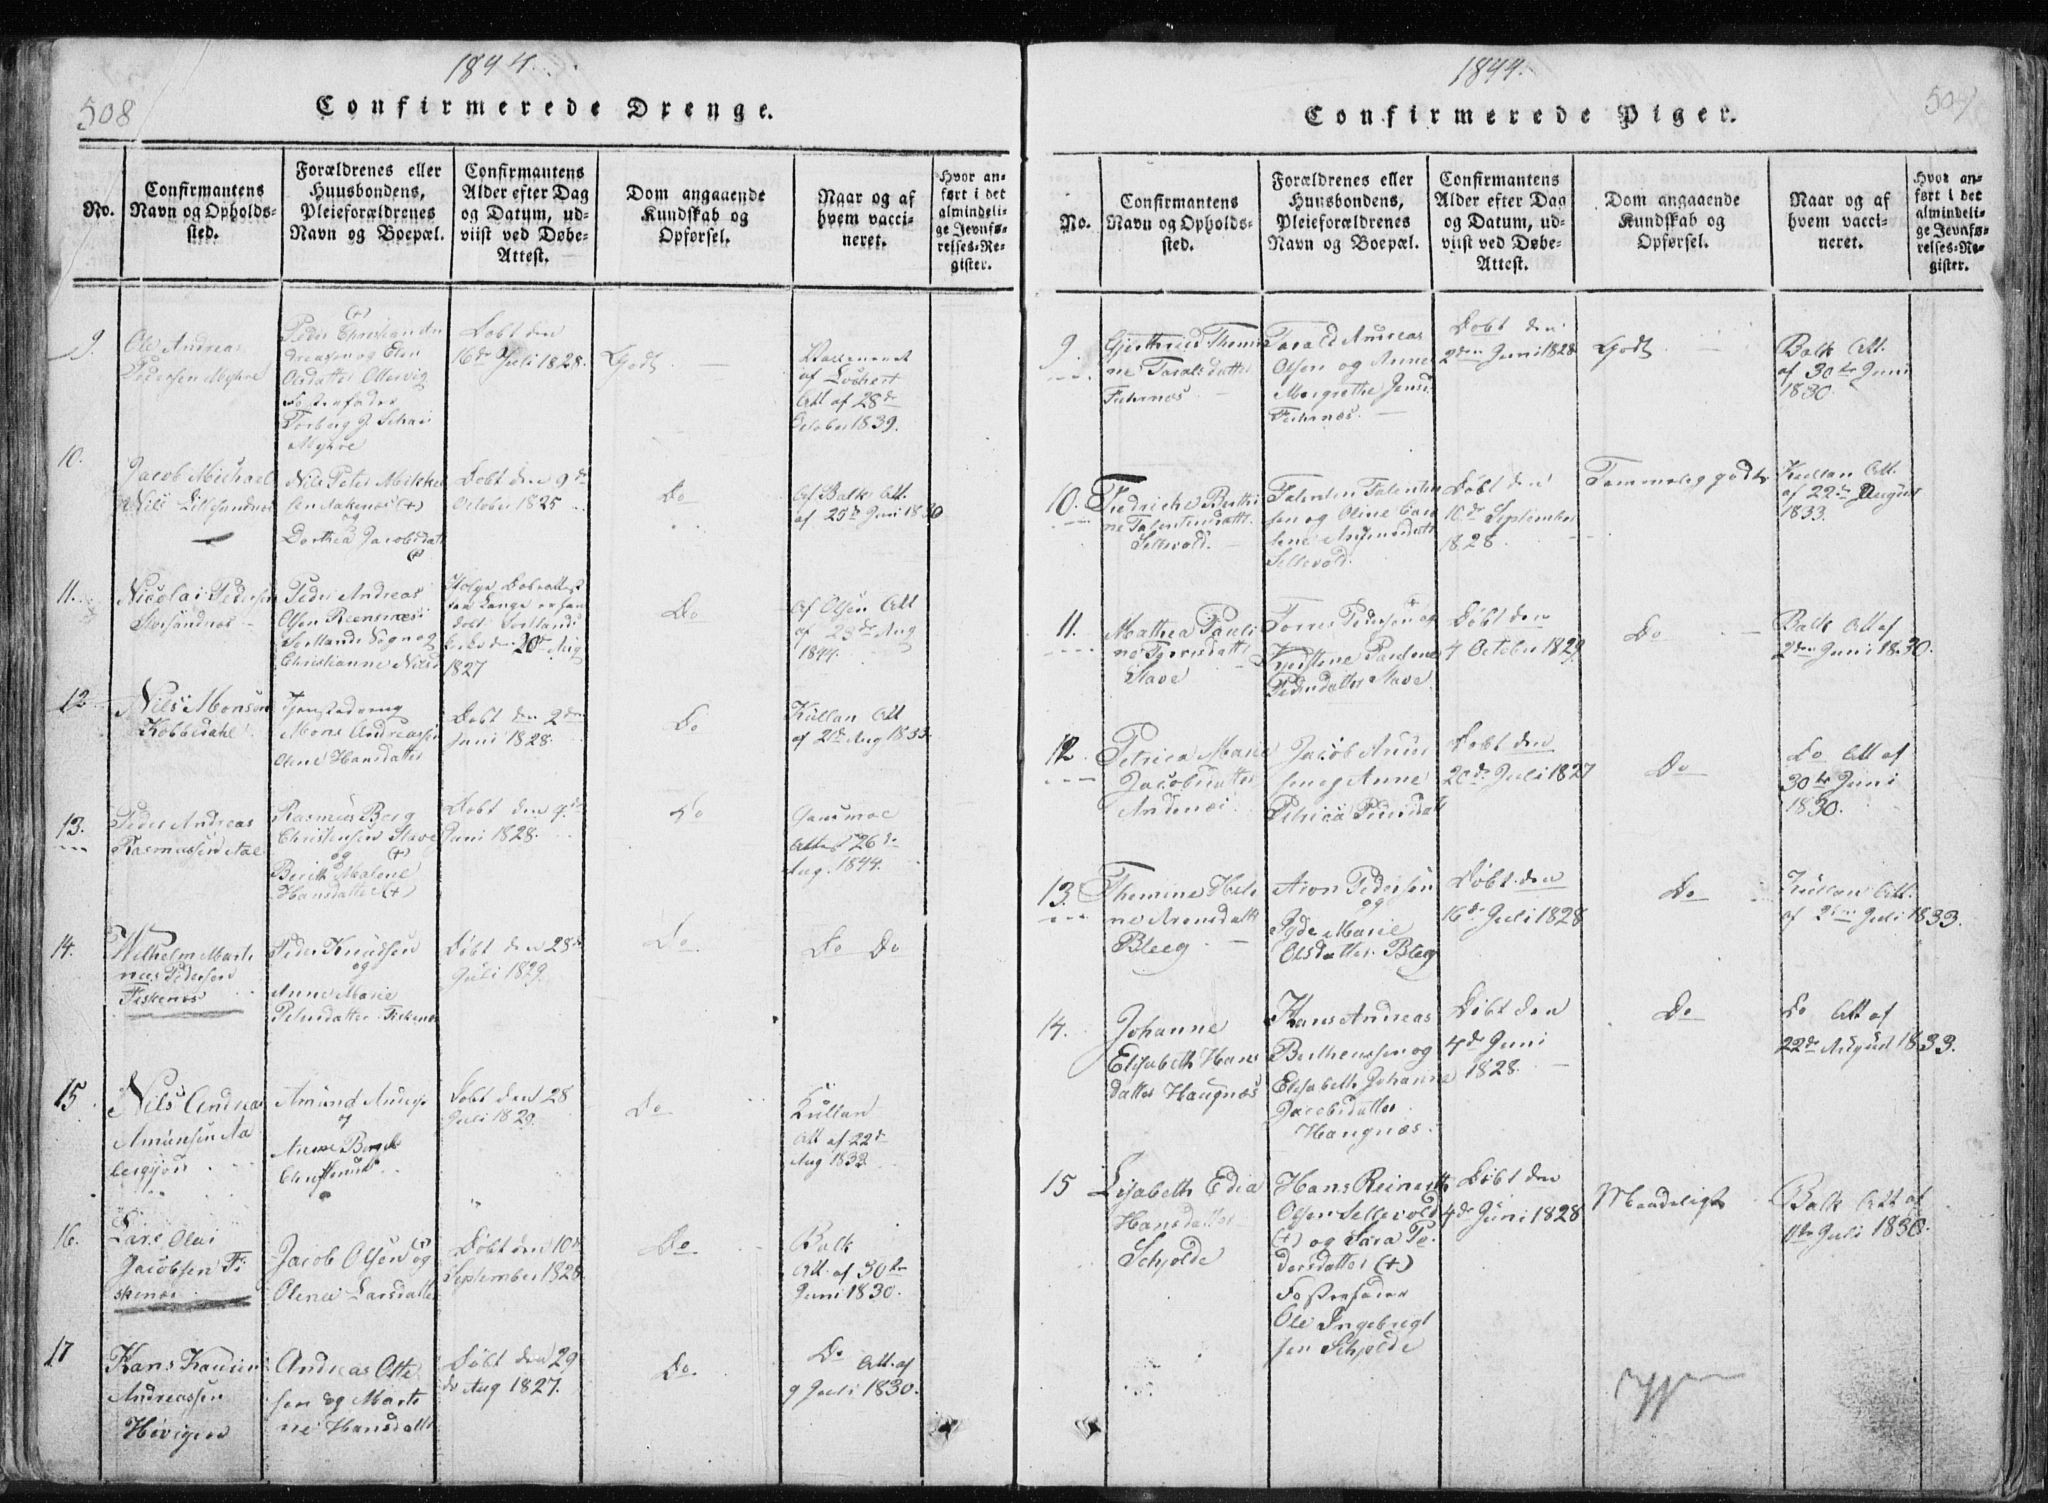 1844.
508
Confirmerede Drenge.
No.
Confirmantens
Navn og Opholds-
sted.
Forældrenes eller
Huusbondens,
Pleieforældrenes
Navn og Boepæl.
Confirmantens
Alder efter Dag
og Datum, ud-
viist ved Døbe-
Attest.
Dom angaaende
Kundskab og
Opførsel.
Naar og af
hvem vacci-
neret.
Hvor an-
ført i det
almindeli-
ge Jevnfø-
relses-Re-
gister.
9.
Ole Andreas
Pedersen Myhre
(+)
Peder Christian An
dreasen og Elen
Olsdatter
Fosterfader
Torberg J.
Myhre
Døbt den
16de Juli 1828.
Godt
Vaccineret
af Lochert
Att af 28de
October 1839.
10.
Jacob Michael
Nils
Nils Peter Mikkel
sen (+)
og
Dorthea Jacobsdatt
(+)
Døbt den 9de
October 1825
Do
Af Balk Att.
af 25de Juni 1830
11.
Nicolai Pedersen
Peder Andreas
Olsen Reensnes
Sortlands Sogn og
Christianne Nilsd
Ifølge Døbeattest
døbt Sortlands
Kirke d 20de Aug
1827
Do
Af Olsen Att
af 28de Aug
1844.
12
Nils Monsen
Kobbedahl
Tjenstedreng
Mons Andreassen
Olene Hansdatter
Døbt den 2den
Juni 1828.
Do
Kullan Att
af 21de Aug 1833.
13.
Peder Andreas
Rasmussen Aae
Rasmus Berg
Christensen Stave
og (+)
Berith Malene
Hansdatter (+)
Døbt den 4de
Juni 1828.
Do
Gausmoe
Attest 26de
Aug. 1844.
14.
Wilhelm Marti
nus Pedersen
Fiskenes
Peder Knudsen
og
Anne Marie
Petersdatter Fiskenes
Døbt den 28de
Juli 1829.
Do
Do Do
15.
Nils Andrea
Amunsen Aa
bergsjøn
Amund Anders
og
Anne Bergit
Døbt den 28
Juli 1829.
Do
Kullan
Att af 22de
Aug 1833
16.
Lars Olai
Jacobsen Fi
skenes
Jacob Olsen (+) og
Olena Larsdatte
Døbt den 10de
September 1828
Do
Balk
Att. af 30te
Juni 1830.
17
Hans
Andreassen
Andreas Otte
sen og Marti
ne Hansdatte
Døbt den 29
de Aug 1827.
Do
Do Att. af
9 Juli 1830.
1844.
507
Confirmerede Piger.
No.
Confirmantens
Navn og Opholds-
sted.
Forældrenes eller
Huusbondens,
Pleieforældrenes
Navn og Boepæl.
Confirmantens
Alder efter Dag
og Datum, ud-
viist ved Døbe-
Attest.
Dom angaaende
Kundskab og
Opførsel.
Naar og af
hvem vacci-
neret.
Hvor an-
ført i det
almindeli-
ge Jevnfø-
relses-Re-
gister.
9.
Gjertrud Thomi
ne Taralsdatter
Tarald Andreas
Olsen og Anne
Margrethe Jensd
Døbt den
2den Juni 1828
Godt
Balk Att.
af 30te Juni
1830.
10.
Fredriche Berthi
ne Falentinsdatt.
Sellevold.
Falentin Falentin
sen og Oline Caro
line
Sellevold.
Døbt den
10de September
1828.
Temmelig godt
Kullan Att.
af 22de August
1833.
11.
Mathea Pauli
ne
Stave
Torres Pedersen og
Kjerstine Pauline
Pedersdatter Stave.
Døbt den
4 October 1829
Do
Balk Att af
2den Juni 1830.
12.
Petrica Marie
Jacobsdatter
Andenæs
Jacob
sen og Anne
Petrica
Døbt den
20de Juli 1827
Do
Do Att af
30te Juni
1830.
13.
Thomine Hele
ne Aronsdatte
Bleeg
Aron Pedersen
og
Marie
Olsdatter Bleeg
Døbt den
16de Juli 1828
Do
Kullan Att.
af Juli 1833.
14.
Johanne
Elisabeth Hans
datter Haugnæs
Hans Andreas
Bertheussen og
Elisabeth Johanne
Jacobsdatter
Haugnæs.
Døbt den
4de Juni
1828.
Do
Do Att af
22de August 1833.
15
Lisabeth Edia
Hansdatter
Schjolde
Hans Reinerth
Olsen Sellevold
(+) og Sara Pe
dersdatter (+)
Fosterfader
Ole Ingebrigt
sen Schjolde
Døbt den
4de Juni 1828
Maadeligt
Balk Att af
Juli 1830.